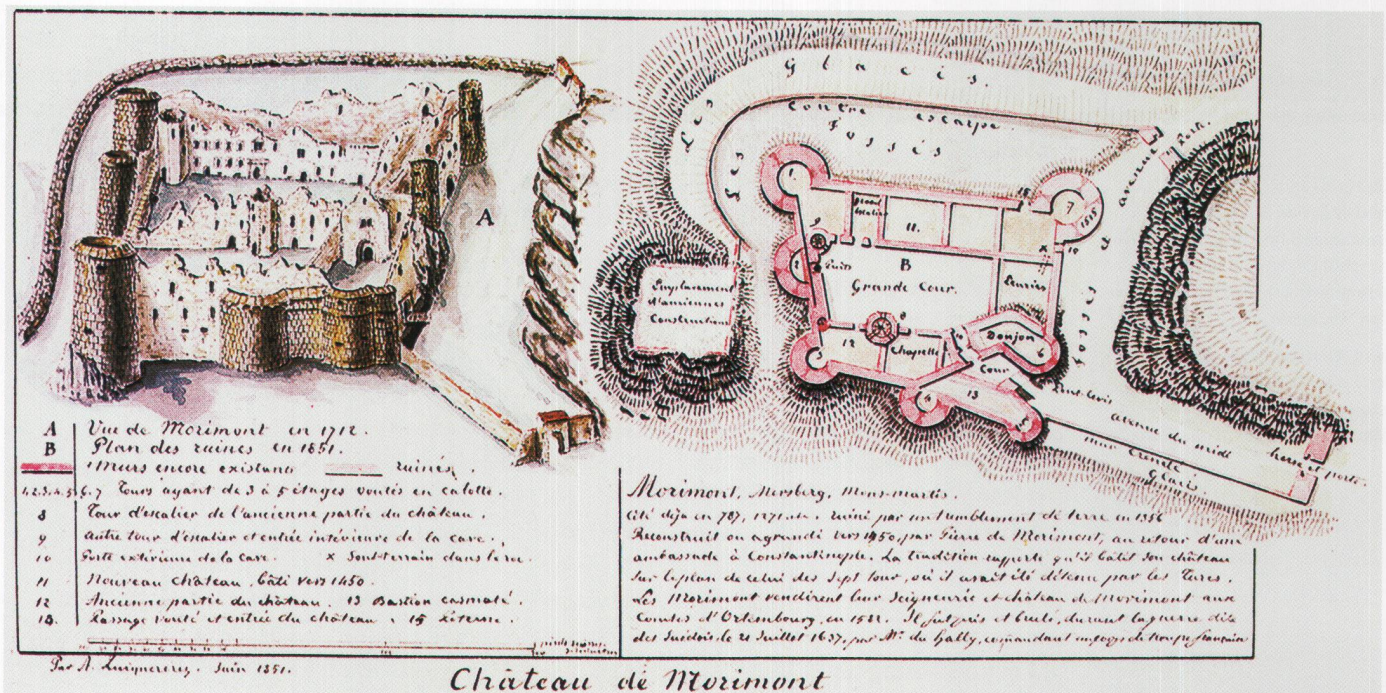 A
Les Glacis
Contre escarpe.
Fossés
avenue
Porte
1
7
1515
15
11.
9
x
10
Puits
B
Grande Cour.
Emplacement
d'anciennes
Constructions
Fossés
8
12
Chapelle
Donjon
6
Cour
13
4
5
Pont-levis
avenue du midi
mur crénelé
Glacis.
herse et porte
A Vue de Morimont en 1712.
B Plan des ruines en 1851.
Murs encore existans ruinés.
1.2.3.4.5.6.7 Tours ayant de 3 à 5 étages voutés en calotte.
8 Tour d'escalier de l'ancienne partie du château.
9 autre tour d'escalier et entrée intérieure de la cave.
10 Porte extérieure de la cave. x Souterrain dans le roc.
11 Nouveau château, bâti vers 1450.
12 Ancienne partie du château. 13 Bastion casmaté.
13. Passage vouté et entrée du château. 15
Par A. Quiquerez. Juin 1851.
Morimont, Mersberg, Mons-martis.
Cité déja en 787, 1271 etc. ruiné par un tremblement de terre en 1356
Reconstruit ou agrandi vers 1450, par Pierre de Morimont, au retour d'une
ambassade à Constantinople. La tradition rapporte qu'il bâtit son château
sur le plan de celui des Sept tour, où il avait été détenu par les Turcs.
Les Morimont vendirent leur Seigneurie et château de Morimont aux
Comtes d'Ortembourg, en 1582. Il fut pris et brulé, durant la guerre dite
des Suédois le 21 Juillet 1637, par Mr. du Hally, comandant un corps de troupe française
Château de Morimont